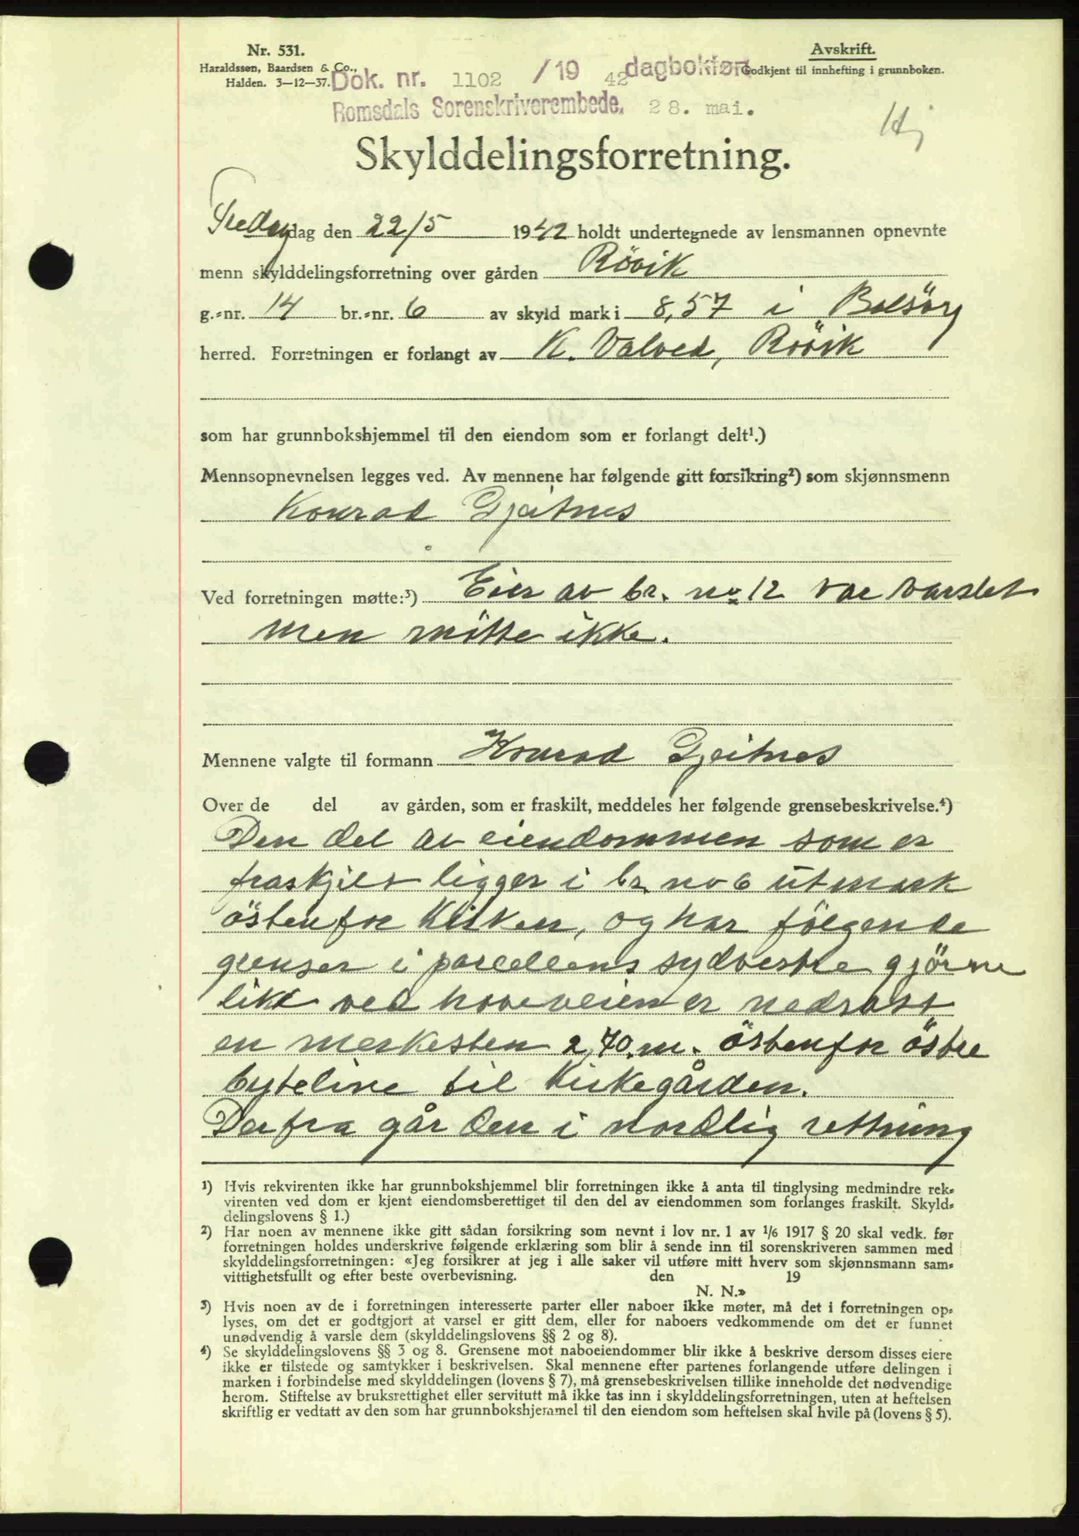 Nr. 531.
Haraldssen, Baardsen & Co.,
Halden. 3—12—37.
Avskrift.
Godkjent til innhefting i grunnboken.
Dok. nr. 1102 /19 42 dagbokført
Romsdals Sorenskriverembede. 28. mai.
Skylddelingsforretning.
dag den 22/5 1942 holdt undertegnede av lensmannen opnevnte
menn skylddelingsforretning over gården Rövik
g.-nr. 14 br.-nr. 6 av skyld mark i 8,57 i Bolsöy
herred. Forretningen er forlangt av K. Valved, Rövik
som har grunnbokshjemmel til den eiendom som er forlangt delt¹.)
Mennsopnevnelsen legges ved. Av mennene har følgende gitt forsikring²) som skjønnsmenn
Konrad Gjeitnes
Ved forretningen møtte:³) Eier av br. no 12 var varslet
men mötte ikke.
Mennene valgte til formann Konrad Gjeitnes
Over de del av gården, som er fraskilt, meddeles her følgende grensebeskrivelse.⁴)
Den del av eiendommen som er
fraskjilt ligger i br. no 6 utmark
östenfor Kirken, og har fölgende
grenser i parcellens sydvestre gjörne
like ved hoveveien er nedsatt
en merkesten 2,70 m. östenfor östre
byteline til Kirkegården.
Derfra går den i nordlig rettning
¹) Hvis rekvirenten ikke har grunnbokshjemmel blir forretningen ikke å anta til tinglysing medmindre rek-
virenten ved dom er kjent eiendomsberettiget til den del av eiendommen som forlanges fraskilt. Skyld-
delingslovens § 1.)
²) Har noen av mennene ikke gitt sådan forsikring som nevnt i lov nr. 1 av 1/6 1917 § 20 skal vedk. før
forretningen holdes underskrive følgende erklæring som blir å sende inn til sorenskriveren sammen med
skylddelingsforretningen: «Jeg forsikrer at jeg i alle saker vil utføre mitt hverv som skjønnsmann sam-
vittighetsfullt og efter beste overbevisning. den 19
N. N.»
³) Hvis noen av de i forretningen interesserte parter eller naboer ikke møter, må det i forretningen op-
lyses, om det er godtgjort at varsel er gitt dem, eller for naboers vedkommende om det er funnet
unødvendig å varsle dem (skylddelingslovens §§ 2 og 8).
⁴) Se skylddelingslovens §§ 3 og 8. Grensene mot naboeiendommer blir ikke å beskrive dersom disses eiere
ikke er tilstede og samtykker i beskrivelsen. Skal mennene efter partenes forlangende utføre delingen i
marken i forbindelse med skylddelingen (lovens § 7), må grensebeskrivelsen tillike inneholde det nødvendige
herom. Stiftelse av bruksrettighet eller servitutt må ikke tas inn i skylddelingsforretningen, uten at heftelsen
skriftlig er vedtatt av den som har grunnbokshjemmel til den eiendom som heftelsen skal hvile på (lovens § 5).